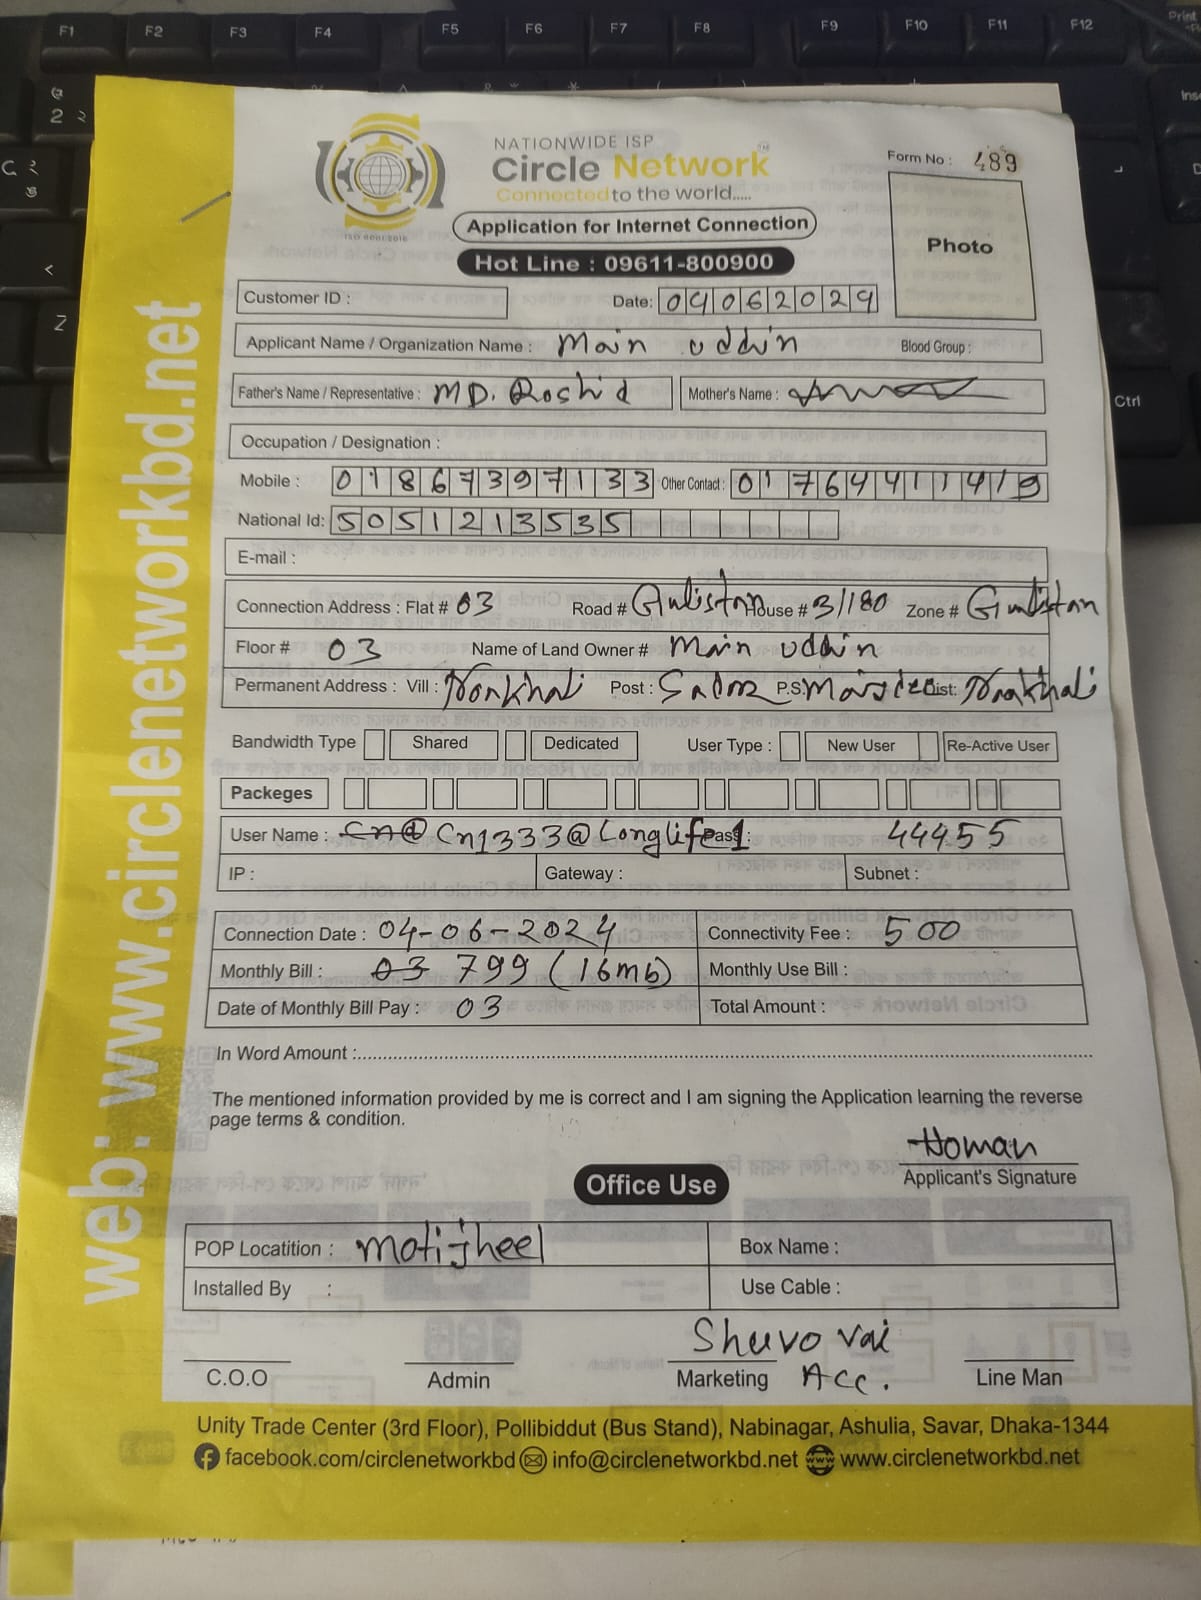 NATIONWIDE ISP
Circle Network™
Connected to the world.....
ISO 9001:2015
Form No : 489
Application for Internet Connection
Hot Line : 09611-800900
Photo
Customer ID :
Date: 04062024
Applicant Name / Organization Name : Main uddin Blood Group :
Father's Name / Representative : MD. Roshid Mother's Name :
Occupation / Designation :
Mobile : 01867397133 Other Contact : 01764411419
National Id: 5051213535
E-mail :
Connection Address : Flat # 03 Road # Gulistan House # 3/180 Zone # Gulistan
Floor # 03 Name of Land Owner # Main uddin
Permanent Address : Vill : Noakhali Post : Sador P.S: Maijdee Dist: Noakhali
Bandwidth Type Shared Dedicated User Type : New User Re-Active User
Packeges
User Name : Cn@ Cn1333@Longlife1 Pass : 44455
IP : Gateway : Subnet :
Connection Date : 04-06-2024 Connectivity Fee : 500
Monthly Bill : 03 799 (16mb) Monthly Use Bill :
Date of Monthly Bill Pay : 03 Total Amount :
In Word Amount :
The mentioned information provided by me is correct and I am signing the Application learning the reverse
page terms & condition.
Homan
Applicant's Signature
Office Use
POP Locatition : Motijheel Box Name :
Installed By : Use Cable :
Shuvo vai
C.O.O Admin Marketing Acc. Line Man
Unity Trade Center (3rd Floor), Pollibiddut (Bus Stand), Nabinagar, Ashulia, Savar, Dhaka-1344
facebook.com/circlenetworkbd info@circlenetworkbd.net www.circlenetworkbd.net
web: www.circlenetworkbd.net
F1 F2 F3 F4 F5 F6 F7 F8 F9 F10 F11 F12
Print
Ins
Ctrl